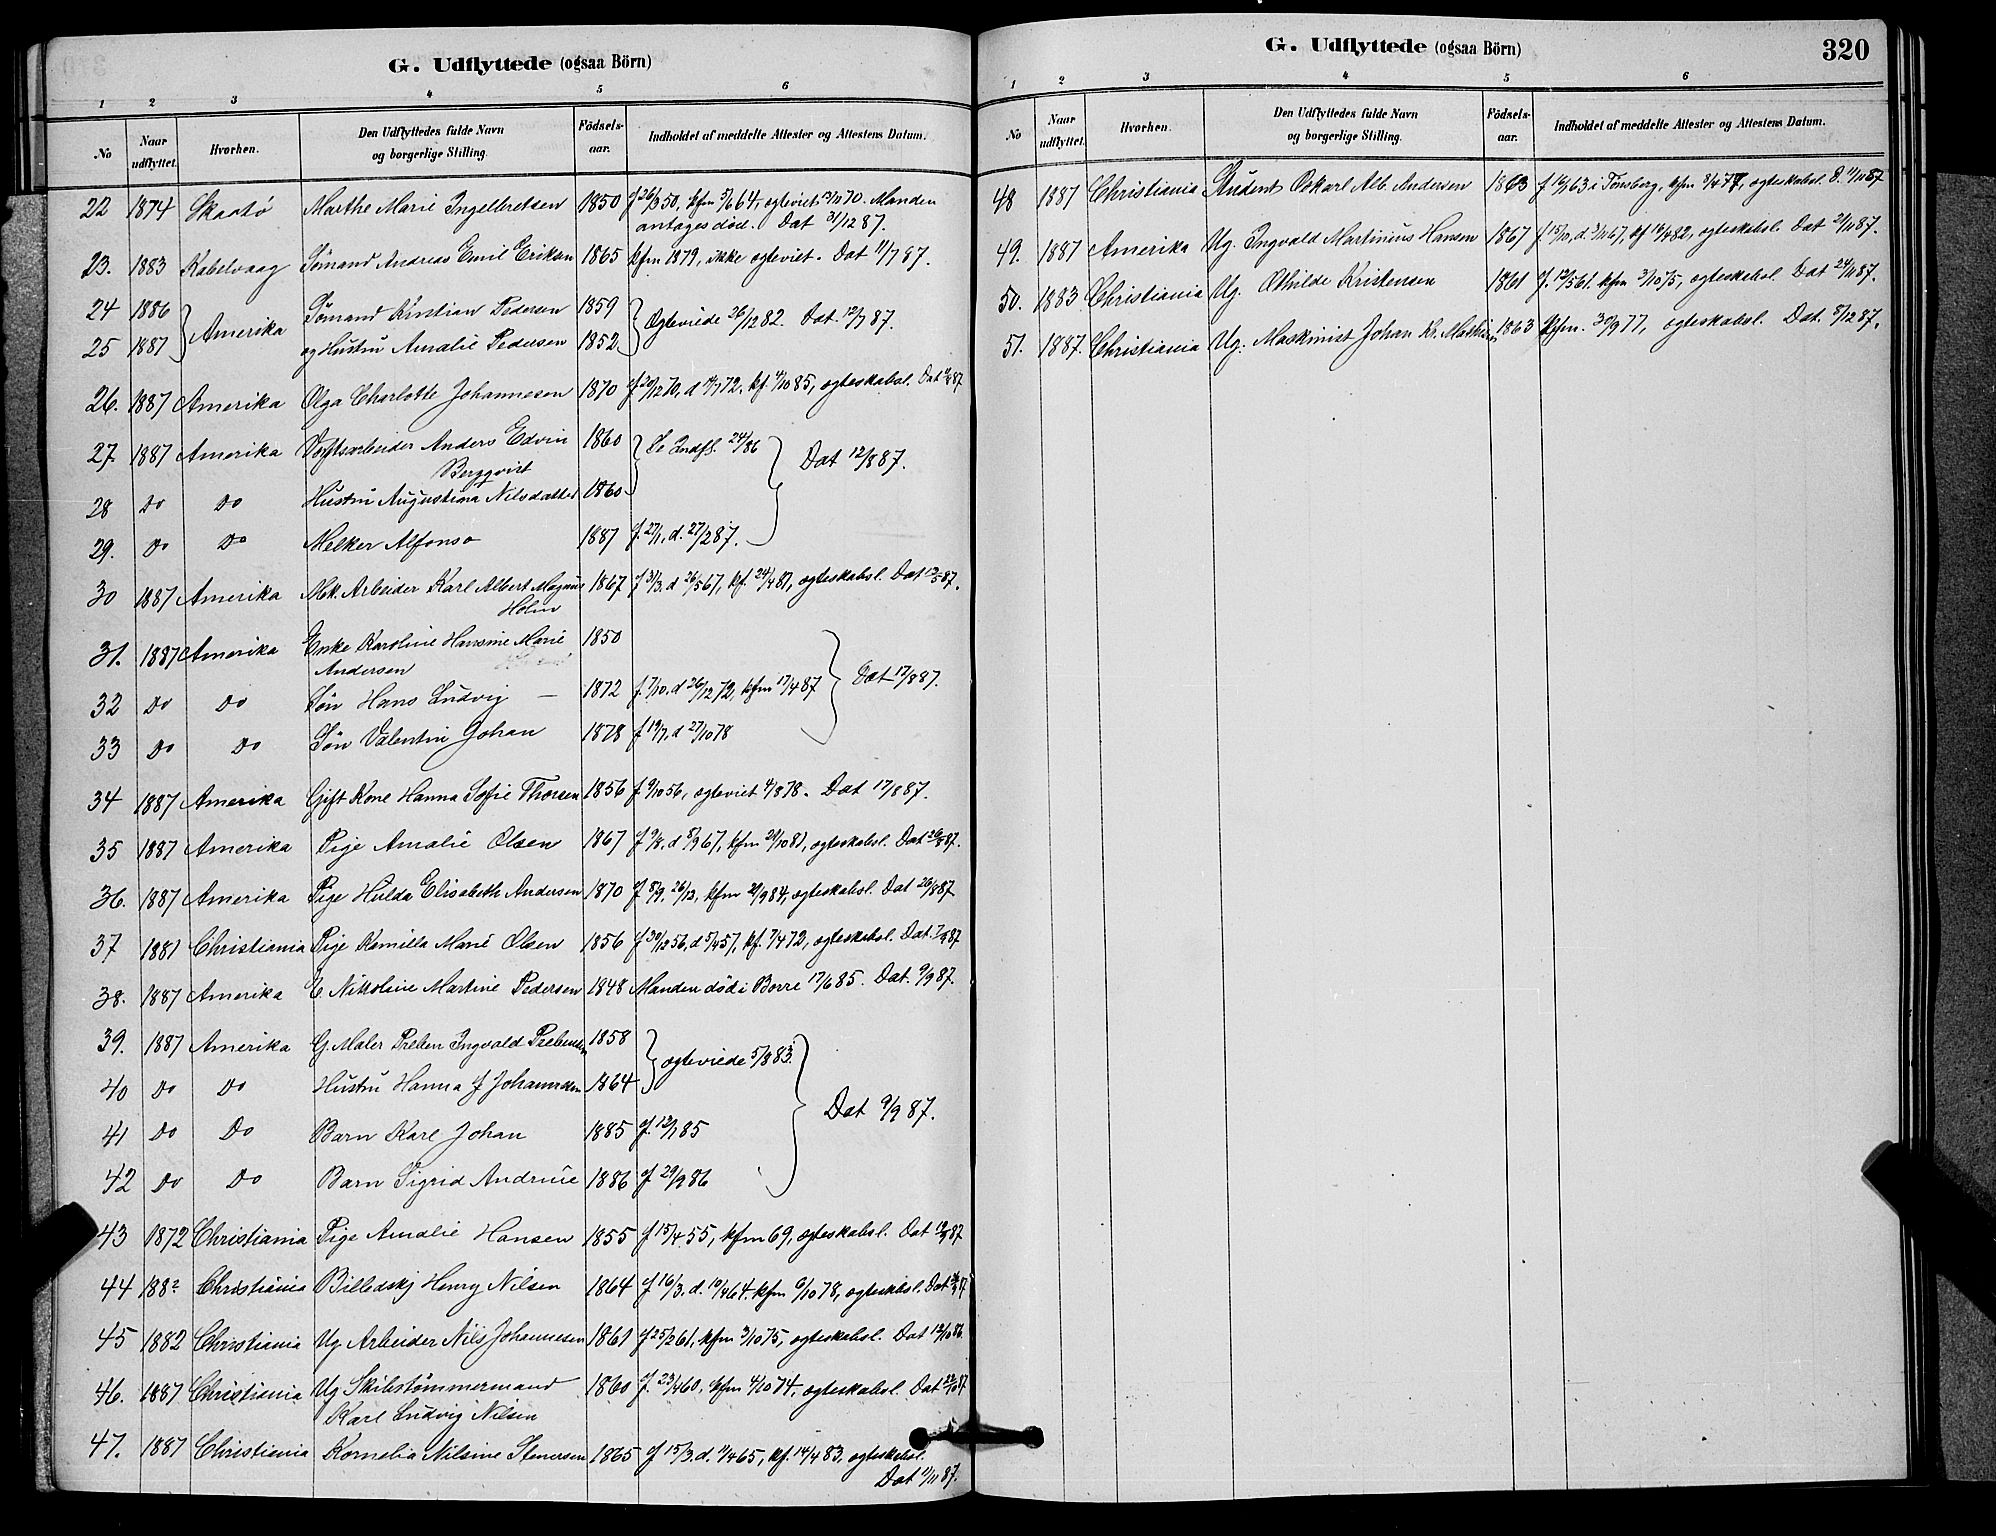 G. Udflyttede (ogsaa Börn)
1 2 3 4 5 6
No Naar udflyttet. Hvorhen. Den Udflyttedes fulde Navn og borgerlige Stilling. Födsels-aar. Indholdet af meddelte Attester og Attestens Datum.
22 1874 Skaatö Marthe Marie Ingelbretsen 1850 f 26/3 50, kfm 5/6 64, egteviet 70. Manden
antages död. Dat 31/12 87.
23. 1883 Kabelvaag Sömand Andreas Emil Eriksen 1865 kfm 1879, ikke egteviet. Dat 11/7 87.
24 1886 Amerika Sömand Kristian Pedersen 1859 Egteviede 26/12 82. Dat. 12/7 87.
25 1887 og Hustru Amalie Pedersen 1852
26. 1887 Amerika Olga Charlotte Johannesen 1870 f 20/12 70, d 14/7 72, kf. 4/10 85, egteskabsl. Dat 87
27 1887 Amerika Værftsarbeider Anders Edvin 1860 Se Indfl. 24/86 Dat 12/8 87.
Bergqvist
28 Do Do Hustru Augustina Nilsdatter 1860
29. Do Do Melker Alfonso 1887 f. 27/1. d. 27/2 87.
30 1887 Amerika Mek. Arbeider Karl Albert Magnus 1867 f 31/3. d 26/5 67, kf. 24/4 81, egteskabsl. Dat 87.
Holm
31. 1887 Amerika Enke Karoline Hansine Marie 1850
Andersen
32 Do Do Sön Hans Ludvig — 1872 f. 7/10. d 26/12 72, kfm 17/4 87 Dat 17/8 87.
33 Do Do Sön Valentin Johan 1878 f 19/7. d 27/10 78
34 1887 Amerika Gift Kone Hanna Sofie Thorsen 1856 f 9/10 56, egteviet 4/8 78. Dat 17/8 87.
35 1887 Amerika Pige Amalie Olsen 1867 f 9/8. d 8/9 67, kfm 81, egteskabsl. Dat 26/8 87.
36. 1887 Amerika Pige Hulda Elisabeth Andersen 1870 f 8/9, 26/12, kfm 21/9 84, egteskabsl. Dat 26/8 87
37 1881 Christiania Pige Kamilla Marie Olsen 1856 f 30/12 56, d 5/4 57, kf. 7/4 72, egteskabsl. Dat. 87
38. 1887 Amerika E. Nikoline Martine Pedersen 1848 Manden död i Borre 17/6 85. Dat. 9/9 87.
39. 1887 Amerika G. Maler Preben Ingvald Prebensen 1858 egteviede 5/8 83.
40 Do Do Hustru Hanna J Johannesen 1864 Dat 9/9 87.
41 Do Do Barn Karl Johan 1885 f. 12/1 85
42 Do Do Barn Sigrid Andrine 1886 f 29/9 86
43 1872 Christiania Pige Amalie Hansen 1855 f 15/4 55, kfm 69, egteskabsl. Dat 87
44 188? Christiania Billedskj Henry Nilsen 1864 f 16/3. d. 10/4 64. kfm 6/10 78, egteskabsl. Dat
45 1882 Christiania Ug Arbeider Nils Johannesen 1861 f 25/2 61, kfm 3/10 75, egteskabsl. Dat 12/10 86.
46. 1887 Christiania Ug Skibstömmermand 1860 f. 23/4 60, kfm 4/10 74, egteskabsl. Dat 22/10 87
Karl Ludvig Nilsen
47. 1887 Christiania Kornelia Nilsine Stenersen 1865 f 15/3. d. 65, kf. 14/4 83, egteskabsl.
Dat 11/11 87.
G. Udflyttede (ogsaa Börn) 320
1 2 3 4 5 6
No Naar udflyttet. Hvorhen. Den Udflyttedes fulde Navn og borgerlige Stilling. Födsels-aar. Indholdet af meddelte Attester og Attestens Datum.
48 1887 Christiania Student Oskarl Alb. Andersen 1863 f 63 i Tönsberg, kfm 8/4 77, egteskabsl. D. 87
49. 1887 Amerika Ug. Ingvald Martinius Hansen 1867 f 15/10, d. 67, kf 16/4 82, egteskabsl. Dat 21/11 87.
50. 1883 Christiania Ug. Othilde Kristensen 1861 f. 12/5 61. kfm 3/10 75, egteskabsl. Dat 24/11 87.
51. 1887. Christiania Ug. Maskinist Johan Kr. Mathisen 1863 kfm. 30/9 77, egteskabsl. Dat. 5/12 87.